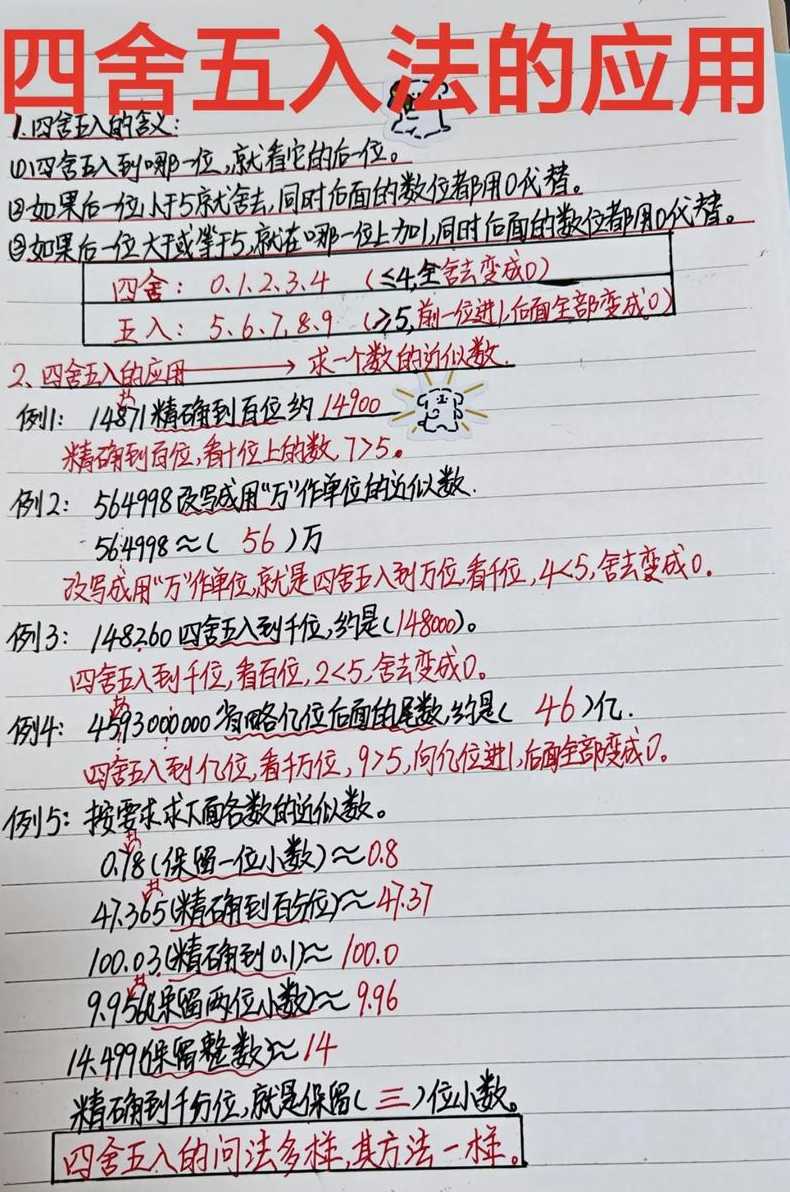 四舍五入法的应用
1.四舍五入的含义:
①四舍五入到哪一位,就看它的后一位。
②如果后一位小于5就舍去,同时后面的数位都用0代替。
③如果后一位大于或等于5,就在哪一位上加1,同时后面的数位都用0代替。
四舍: 0.1.2.3.4 (≤4,全舍去变成0)
五入: 5.6.7.8.9 (≥5,前一位进1,后面全部变成0)
2、四舍五入的应用→求一个数的近似数.
例1: 14871精确到百位约 14900
精确到百位,看十位上的数,7>5。
例2: 564998改写成用"万"作单位的近似数.
564998≈( 56 )万
改写成用"万"作单位,就是四舍五入到万位,看千位,4<5,舍去变成0。
例3: 148260四舍五入到千位,约是(148000)。
四舍五入到千位,看百位,2<5,舍去变成0。
例4: 4593000000省略亿位后面的尾数,约是( 46 )亿.
四舍五入到亿位,看千万位,9>5,向亿位进1,后面全部变成0。
例5: 按要求求下面各数的近似数。
0.78(保留一位小数)≈0.8
47.365(精确到百分位)≈47.37
100.03(精确到0.1)≈100.0
9.956(保留两位小数)≈9.96
14.499(保留整数)≈14
精确到千分位,就是保留(三)位小数。
四舍五入的问法多样,其方法一样。